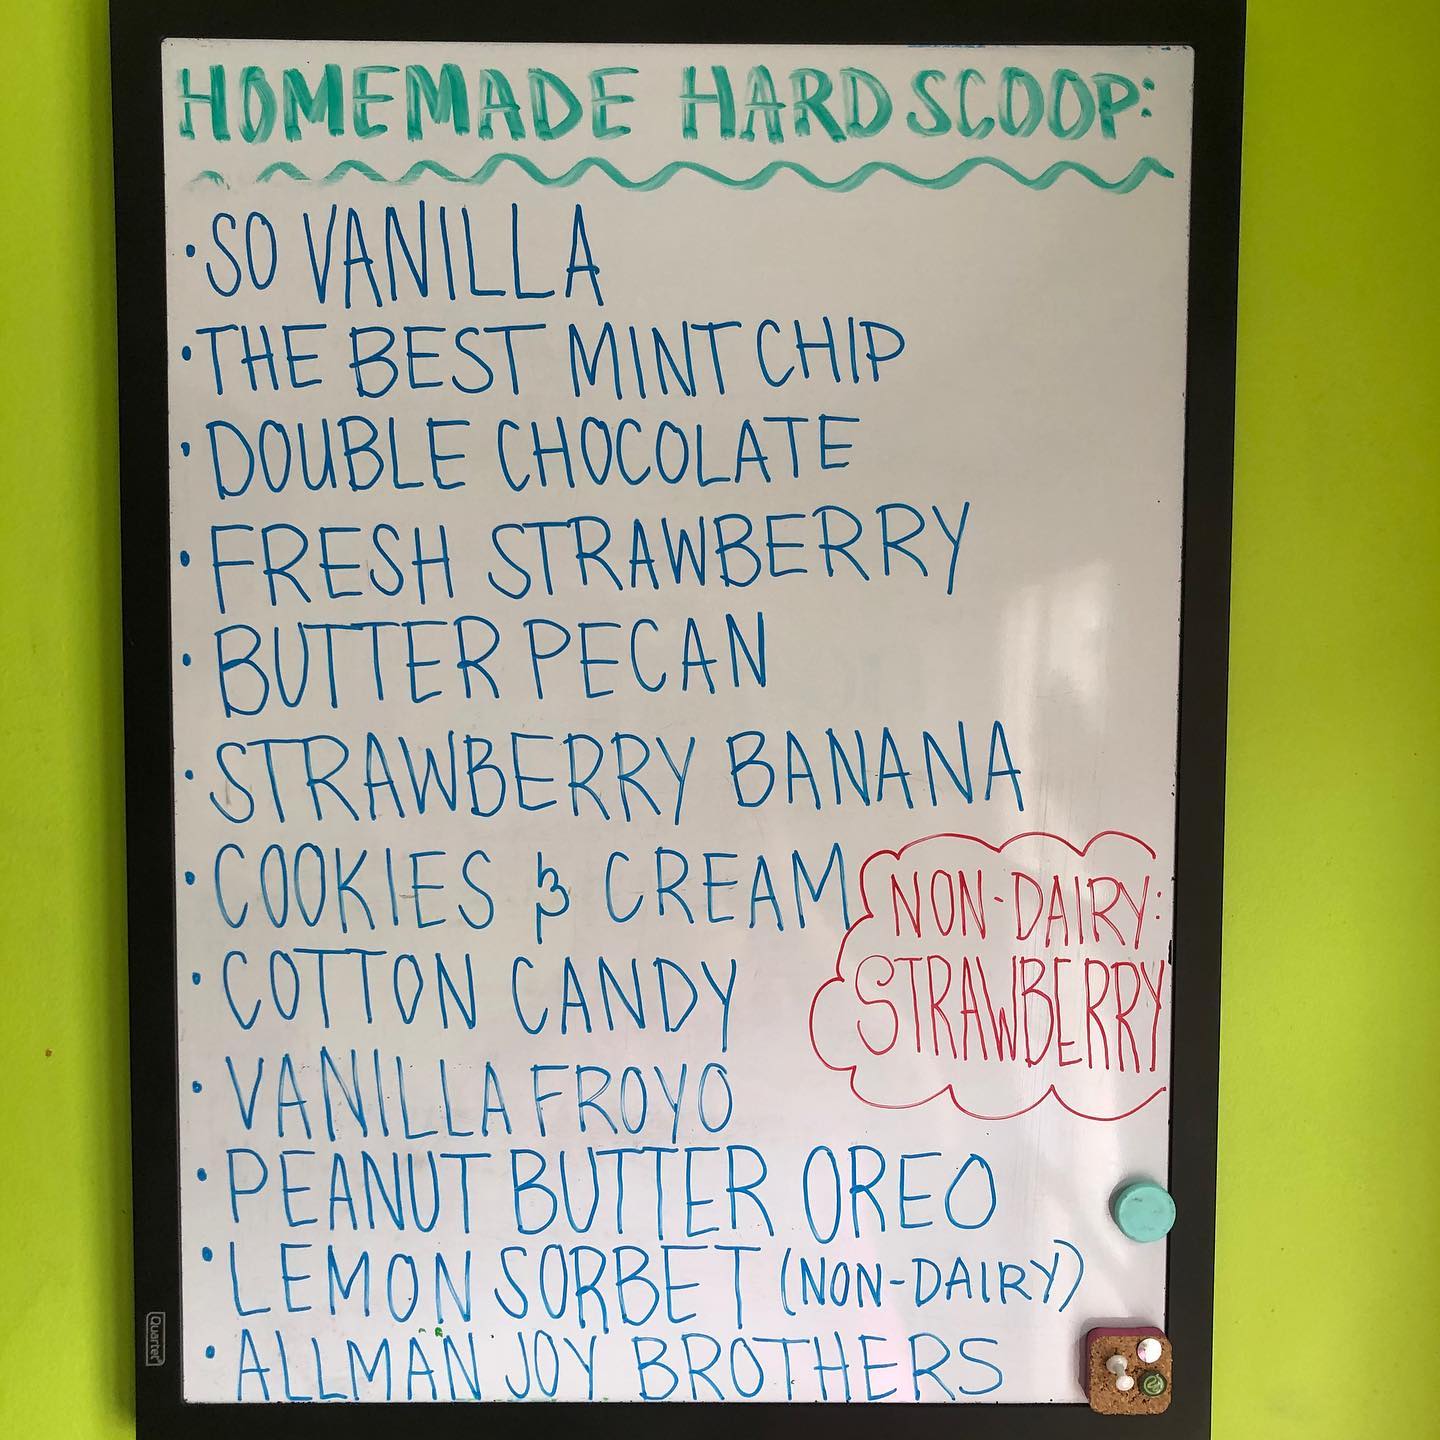 HOMEMADE HARD SCOOP:
•SO VANILLA
•THE BEST MINT CHIP
•DOUBLE CHOCOLATE
•FRESH STRAWBERRY
•BUTTER PECAN
•STRAWBERRY BANANA
•COOKIES & CREAM
NON-DAIRY:
STRAWBERRY
•COTTON CANDY
•VANILLA FROYO
•PEANUT BUTTER OREO
•LEMON SORBET (NON-DAIRY)
•ALLMAN JOY BROTHERS
Quartet